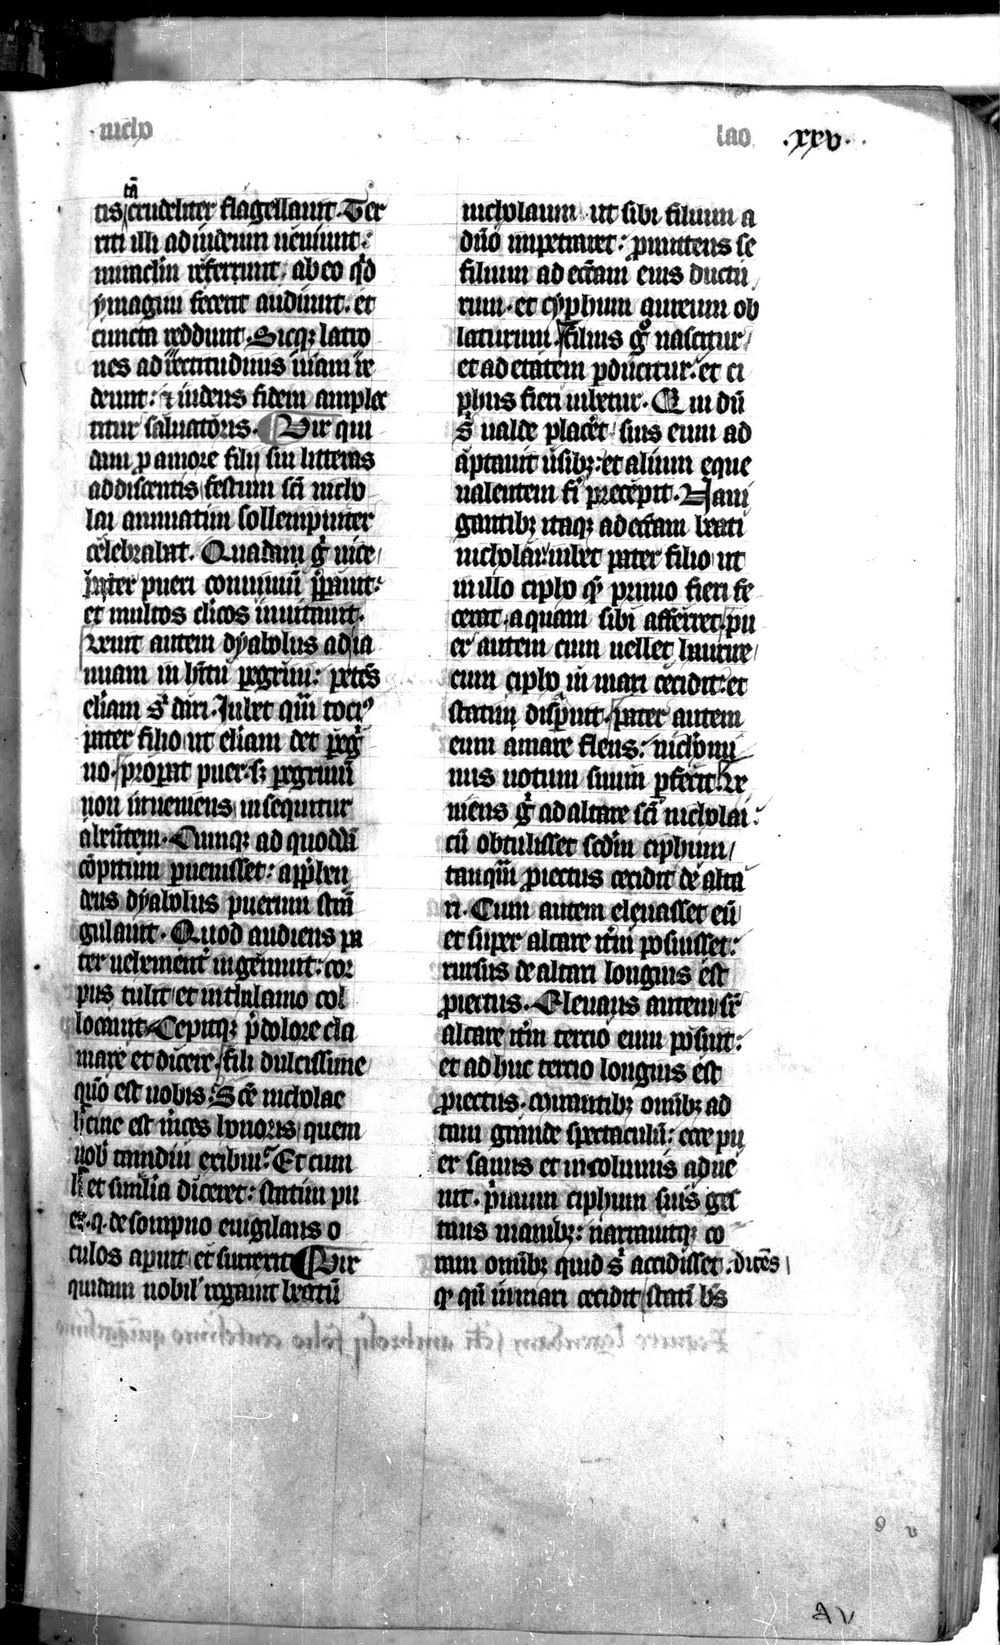 nicho
lao .xxv.
tā
tis crudeliter flagellauit. Ter
riti illi ad iudeum ueniunt:
miraclm referunt, ab eo qd
ymagini fecerat audiunt. et
cuncta reddunt. Sicqz latro
nes ad rectitudinis uiam re
deunt: et iudeus fidem amplec
titur saluatoris. Vir qui
dam pro amore filij sui litteras
addiscentis festum sci nicho
lai annuatim sollempniter
celebrabat. Quadam g uice
pater pueri conuiuiū pparauit:
et multos clicos inuitauit.
Venit autem dyabolus ad ia
nuam in hitu pegrini: petēs
elīam s dari. Iubet qm toci
pater filio ut elīam det peg
no. properat puer. sz pegrinū
non inueniens insequitur
abeūtem. Cumqz ad quoddā
cōpitum puenisset: apphen
dens dyabolus puerum strā
gulauit. Quod audiens pa
ter uehement ingemuit: cor
pus tulit et in thalamo col
locauit. Cepitqz p dolore cla
mare et dicere. fili dulcissime
quō est uobis. Sce nicholae
hcine est mces honoris quem
uob tamdiu exibui? Et cum
h et similia diceret: statim pu
er. q. de sompno euigilans o
culos aperuit et surrexit. Vir
quidam nobil rogauit beatū
nicholaum ut sibi filium a
dno impetraret: promittens se
filium ad ecclam eius ductu
rum. et cyphum aureum ob
laturum. Filius g nascitur
et ad etatem pducitur. et ci
phus fieri iubetur. Qui dū
s ualde placet suis eum ad
aptauit usibz: et alium eque
ualentem fi precepit. Naui
gantibz itaqz ad ecclam beati
nicholai. iubet pater filio ut
in illo cipho qz primo fieri fe
cerat. aquam sibi afferret. pu
er autem cum uellet haurire
cum cipho in mari cecidit: et
statim disparuit. pater autem
eum amare flens: nichomi
nus uotum suum pfecit. Ve
niens g ad altare sci nicholai:
cū obtulisset scdm ciphum
tanqm proiectus cecidit de alta
ri. Cum autem eleuasset eū
et super altare itm posuisset:
rursus de altari longius est
proiectus. Eleuans autem sr
altare itm tercio eum posuit:
et adhuc tercio longius est
proiectus. mirantibz omibz ad
tam grande spectaculū: ecce pu
er sanus et incolumis adue
nit. primum ciphum suis ges
tans manibz: narrauitqz co
ram omibz quid s accidisset. dicēs
qz qn in mari cecidit stati bts